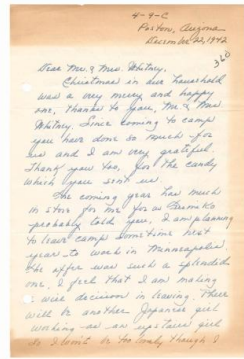 4-9-C
Poston, Arizona
December 22, 1942
360
Dear Mr. & Mrs. Whitney,
Christmas in our household
was a very merry and happy
one, thanks to you, Mr. & Mrs.
Whitney. Since coming to camp
you have done so much for
us and I am very grateful.
Thank you too, for the candy
which you sent us.
The coming year has much
in store for me for as Fumiko
probably told you, I am planning
to leave camp sometime next
year to work in Minneapolis.
The offer was such a splendid
one, I feel that I am making
a wise decision in leaving. There
will be another Japanese girl
working as an upstairs girl
so I won't be too lonely though I